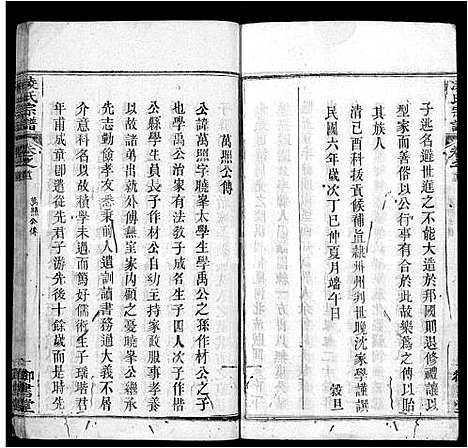 子逃名避世進之不能大造於邦國則退修禮讓以
型家而善俗以公行事有合於此故樂爲之傳以
其族人
清己酉科拔貢候補直隸州州判世晚沈家學謹撰
民國六年歲次丁巳仲夏月端午日
穀旦
萬照公傳
公諱萬照字曉峯太學生學禹公之孫作材公之子
也學禹公治家有法教子成名生子四人次子作
公縣學生員長子作材公自幼主持家政服事孝養
以故諸弟出就外傳無室家內顧之憂曉峯公繼承
先志勤儉孝友素凛遺訓讀書務通大義不屑
意外科名以故積學未遇而篤好儒術生子瑞堦
年甫成童即遣從先君子游先後十餘歲而是時先
凌氏宗譜
萬照公傳